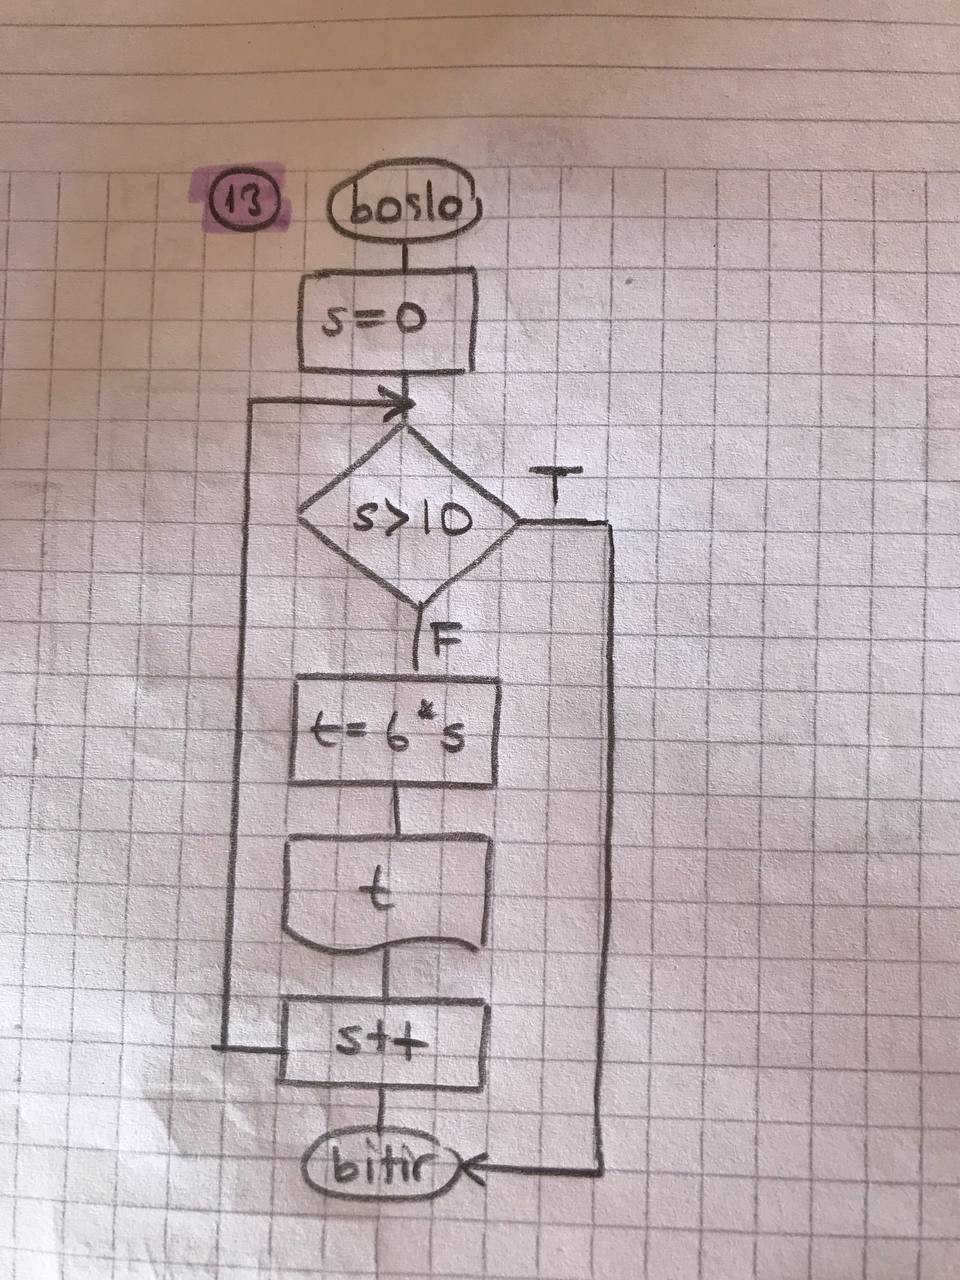 13
başla
s=0
s>10
T
F
t=6*s
t
s++
bitir